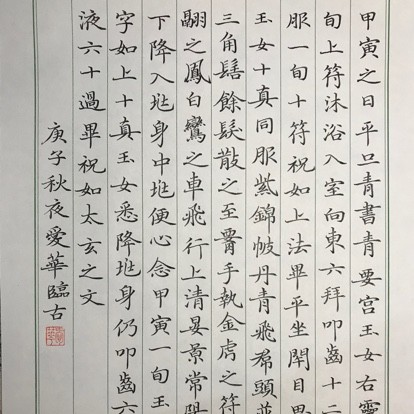 甲寅之日平旦青書青要宮玉女右靈
旬上符沐浴入室向東六拜叩齒十二
服一旬十符祝如上法畢平坐閉目思
玉女十真同服紫錦帔丹青飛帬頭並
三角髻餘髮散之至腰手執金虎之符
翮之鳳白鸞之車飛行上清晏景常陽
下降入兆身中兆便心念甲寅一旬玉
字如上十真玉女悉降兆身仍叩齒六
液六十過畢祝如太玄之文
庚子秋夜愛華臨古